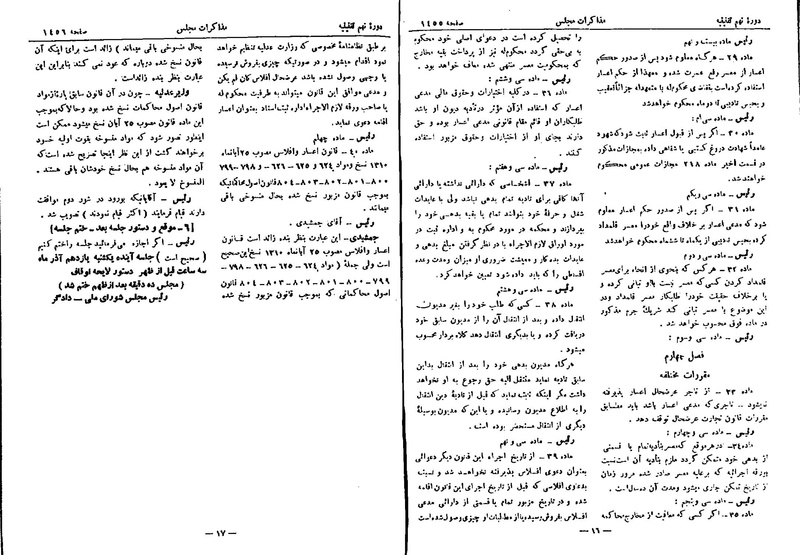 دورهٔ نهم تقنینیه
مذاکرات مجلس
صفحه ۱۴۵۵
رئیس ماده بیست و نهم
ماده ۲۹ ـ هرگاه معلوم شود پس از صدور حکم
اعسار از معسر رفع عسرت شده و معهذا از حکم اعسار
استفاده کرده است بتقاضای محکوم‌له یا متعهدله جزائاً تعقیب
و بحبس تادیبی تا دو ماه محکوم خواهد شد
رئیس ـ ماده سی‌ام:
ماده ۳۰ ـ اگر پس از قبول اعسار ثابت شود که شهود
عامداً شهادت دروغ کتبی یا شفاهی داده بمجازات مذکور
در قسمت اخیر ماده ۲۱۸ مجازات عمومی محکوم
خواهند شد.
رئیس ـ ماده سی و یکم
ماده ۳۱ ـ اگر پس از صدور حکم اعسار معلوم
شود که مدعی اعسار بر خلاف واقع خود را معسر قلمداد
کرده بحبس تادیبی از یکماه تا ششماه محکوم خواهد شد
رئیس ـ ماده سی و دوم
ماده ۳۲ ـ هر کس که بنحوی از انحاء برای معسر
قلمداد کردن کسی که معسر نیست با او تبانی کرده و
یا برخلاف حقیقت خود را طلبکار معسر قلمداد و در
این موضوع با معسر تبانی کند شریک جرم مذکور
در ماده فوق محسوب خواهد شد.
رئیس ـ ماده سی و سوم:
فصل چهارم
مقررات مختلفه
ماده ۳۳ ـ از تاجر عرضحال اعسار پذیرفته
نمیشود .. تاجری که مدعی اعسار باشد باید مطابق
مقررات قانون تجارت عرضحال توقف دهد .
رئیس ـ ماده سی و چهارم:
ماده ۳۴ـ در هر موقع که معسر بتأدیه تمام یا قسمتی
از بدهی خود متمکن گردد ملزم بتأدیه آن است نسبت
بورقه اجرائیه که برعلیه معسر صادر شده مرور زمان
از تاریخ تمکن جاری میشود و مدت آن ده سال است .
رئیس ـ ماده سی و پنجم :
ماده ۳۵ـ اگر کسی که معافیت از مخارج محاکمه
را تحصیل کرده است در دعوای اصلی خود محکوم
به بی‌حقی گردد محکوم‌له نیز از پرداخت بقیه مخارج
که بمحکومیت معسر منتهی شده معاف خواهد بود .
رئیس ـ ماده سی و ششم :
ماده ۳۶ ـ در کلیه اختیارات و حقوق مالی مدعی
اعسار که استفاده از آن مؤثر در تأدیه دیون او باشد
طلبکاران او قائم مقام قانونی مدعی اعسار بوده و حق
دارند بجای او از اختیارات و حقوق مزبور استفاده
کنند .
رئیس ـ ماده سی و هفتم :
ماده ۳۷ ـ اشخاصی که دارائی نداشته یا دارائی
آنها کافی برای تادیه تمام بدهی نباشد ولی با عایدات
شغل و حرفهٔ خود بتوانند تمام یا بقیه بدهی خود را
بپردازند و محکمه در مورد حکم به و اداره ثبت در
مورد اوراق لازم الاجراء با در نظر گرفتن مبلغ بدهی و
عایدات بدهکار و معیشت ضروری او میزان و مدت و عده
اقساطی را که باید داده شود تعیین خواهد کرد.
رئیس ـ ماده سی و هشتم
ماده ۳۸ ـ کسی که طلب خود را بغیر مدیونت
انتقال داده و بعد از انتقال آن را از مدیون سابق خود
دریافت کرده و یا بدیگری انتقال دهد کلاه بردار محسوب
میشود .
هرگاه مدیون بدهی خود را بعد از انتقال بداین
سابق تادیه نماید منتقل‌الیه حق رجوع به او نخواهد
داشت مگر اینکه ثابت نماید که قبل از تادیهٔ دین انتقال
را به اطلاع مدیون رسانیده و یا این که مدیون بوسیلهٔ
دیگری از انتقال مستحضر بوده است .
رئیس ـ ماده سی و نهم
ماده ۳۹ ـ از تاریخ اجراء این قانون دیگر دعوائی
بعنوان دعوی افلاس پذیرفته نخواهد شد و نسبت
بدعاوی افلاسی که قبل از تاریخ اجرای این قانون اقامه
شده و در تاریخ مزبور تمام یا قسمتی از دارائی مدعی
افلاس بفروش رسیده یا از مطالبات او چیزی وصول شده است
ـ ۱۶ ـ
دورهٔ نهم تقنینیه
مذاکرات مجلس
صفحه ۱۴۵۶
بر طبق نظامنامهٔ مخصوصی که وزارت عدلیه تنظیم خواهد
نمود اقدام میشود و در صورتیکه چیزی بفروش نرسیده
یا وجهی وصول نشده باشد عرضحال افلاس کان لم یکن
و مدعی موافق این قانون میتواند بطرفیت محکوم له
یا صاحب ورقه لازم الاجراء اداره ثبت اسناد بعنوان اعسار
اقامه دعوی نماید .
رئیس ـ ماده چهلم
ماده ۴۰ ـ قانون اعسار و افلاس مصوب ۲۵ آبانماه
۱۳۱۰ نسخ و مواد ۶۲۴ و ۶۲۵ ـ ۶۲۶ و ۷۹۸ـ۷۹۹
۸۰۰ـ۸۰۱ـ۸۰۲ـ۸۰۳ـ۸۰۴ قانون اصول محاکماتیکه
بموجب قانون مزبور نسخ شده بحال منسوخی باقی
میمانند .
رئیس ـ آقای جمشیدی .
جمشیدی ـ این عبارت بنظر بنده زائد است قانون
اعسار و افلاس مصوب ۲۵ آبانماه ۱۳۱۰ نسخ این صحیح
است ولی جملهٔ ( مواد ۶۲۴ ـ ۶۲۵ ـ ۶۲۶ ـ ۷۹۸ ـ
۷۹۹ ـ ۸۰۰ ـ ۸۰۱ ـ ۸۰۲ ـ ۸۰۳ ـ ۸۰۴ قانون
اصول محاکماتی که بموجب قانون مزبور نسخ شده
بحال منسوخی باقی میماند ) زائد است برای اینکه آن
قانون نسخ شده دوباره که عود نمی کند بنابراین این
عبارت بنظر بنده زائد است .
وزیر عدلیه ـ چون در آن قانون سابق پارهٔ از مواد
قانون اصول محاکمات نسخ شده بود و حالا که بموجب
این ماده قانون مصوب ۲۵ آبان نسخ میشود ممکن است
اینطور تصور شود که مواد منسوخه بقوت اولیه خود
برخواهد گشت از این نظر اینجا تصریح شده است که
آن مواد منسوخه هم بحال نسخ خودشان باقی هستند .
المنسوخ لا یعود .
رئیس ـ آقایانیکه بورود در شور دوم موافقت
دارند قیام فرمایند ( اکثر قیام نمودند ) تصویب شد .
[ ۶ ـ موقع و دستور جلسه بعد ـ ختم جلسه ]
رئیس ـ اگر اجازه می فرمائید جلسه را ختم کنیم
( صحیح است ) جلسه آینده یکشنبه یازدهم آذر ماه
سه ساعت قبل از ظهر دستور لایحه اوقاف
( مجلس ده دقیقه بعد از ظهر ختم شد )
رئیس مجلس شورای ملی ـ دادگر
ـ ۱۷ ـ